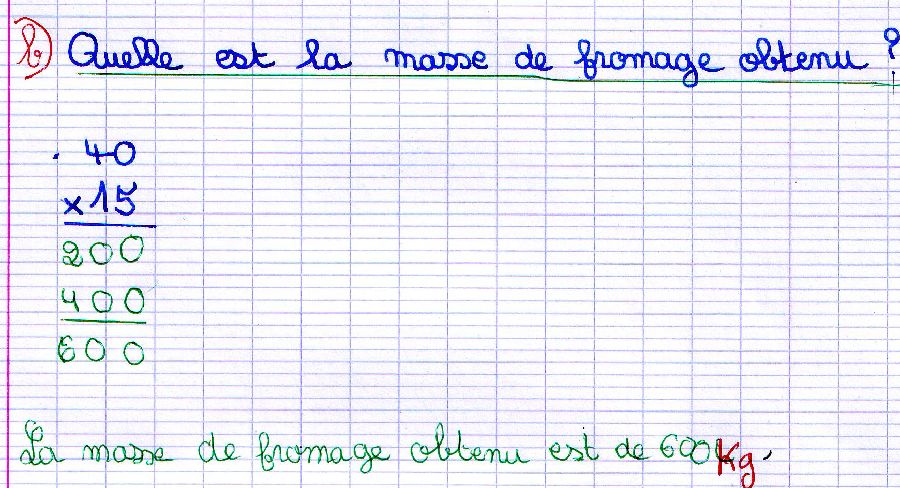 b) Quelle est la masse de fromage obtenu ?
. 40
x 15
200
400
600
La masse de fromage obtenu est de 600 Kg.